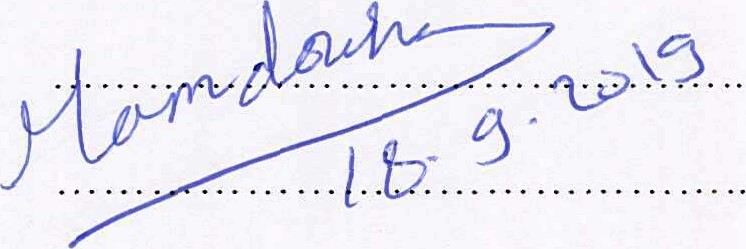 Mamdouh
18.9.2019